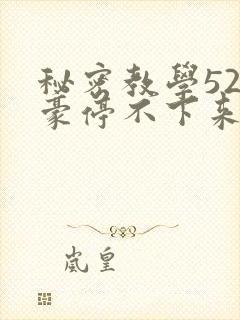 秘密教學52
豪停不下來
嵐皇